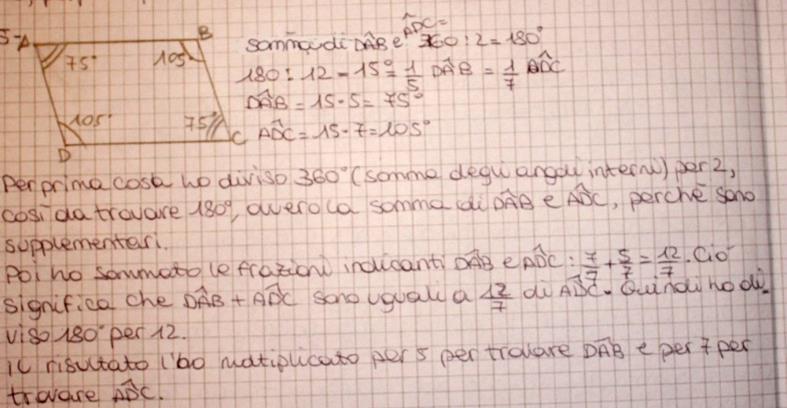 5-A B
somma di DÂB e AD̂C=
360:2=180°
75° 105°
180:12=15°=1/5 DÂB = 1/7 AD̂C
DÂB=15·5=75°
105° 75° C
AD̂C=15·7=105°
D
Per prima cosa ho diviso 360° (somma degli angoli interni) per 2,
così da trovare 180°, ovvero la somma di DÂB e AD̂C, perchè sono
supplementari.
Poi ho sommato le frazioni indicanti DÂB e AD̂C: 7/7+5/7=12/7. Ciò
significa che DÂB + AD̂C sono uguali a 12/7 di AD̂C. Quindi ho di-
viso 180° per 12.
Il risultato l'ho moltiplicato per 5 per trovare DÂB e per 7 per
trovare AD̂C.